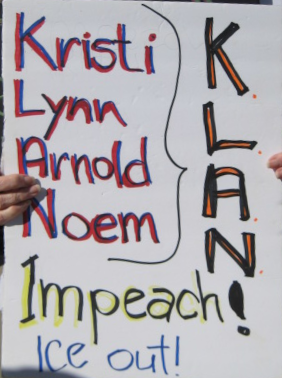 Kristi
Lynn
Arnold
Noem
K.
L.
A.
N.
Impeach!
Ice out!